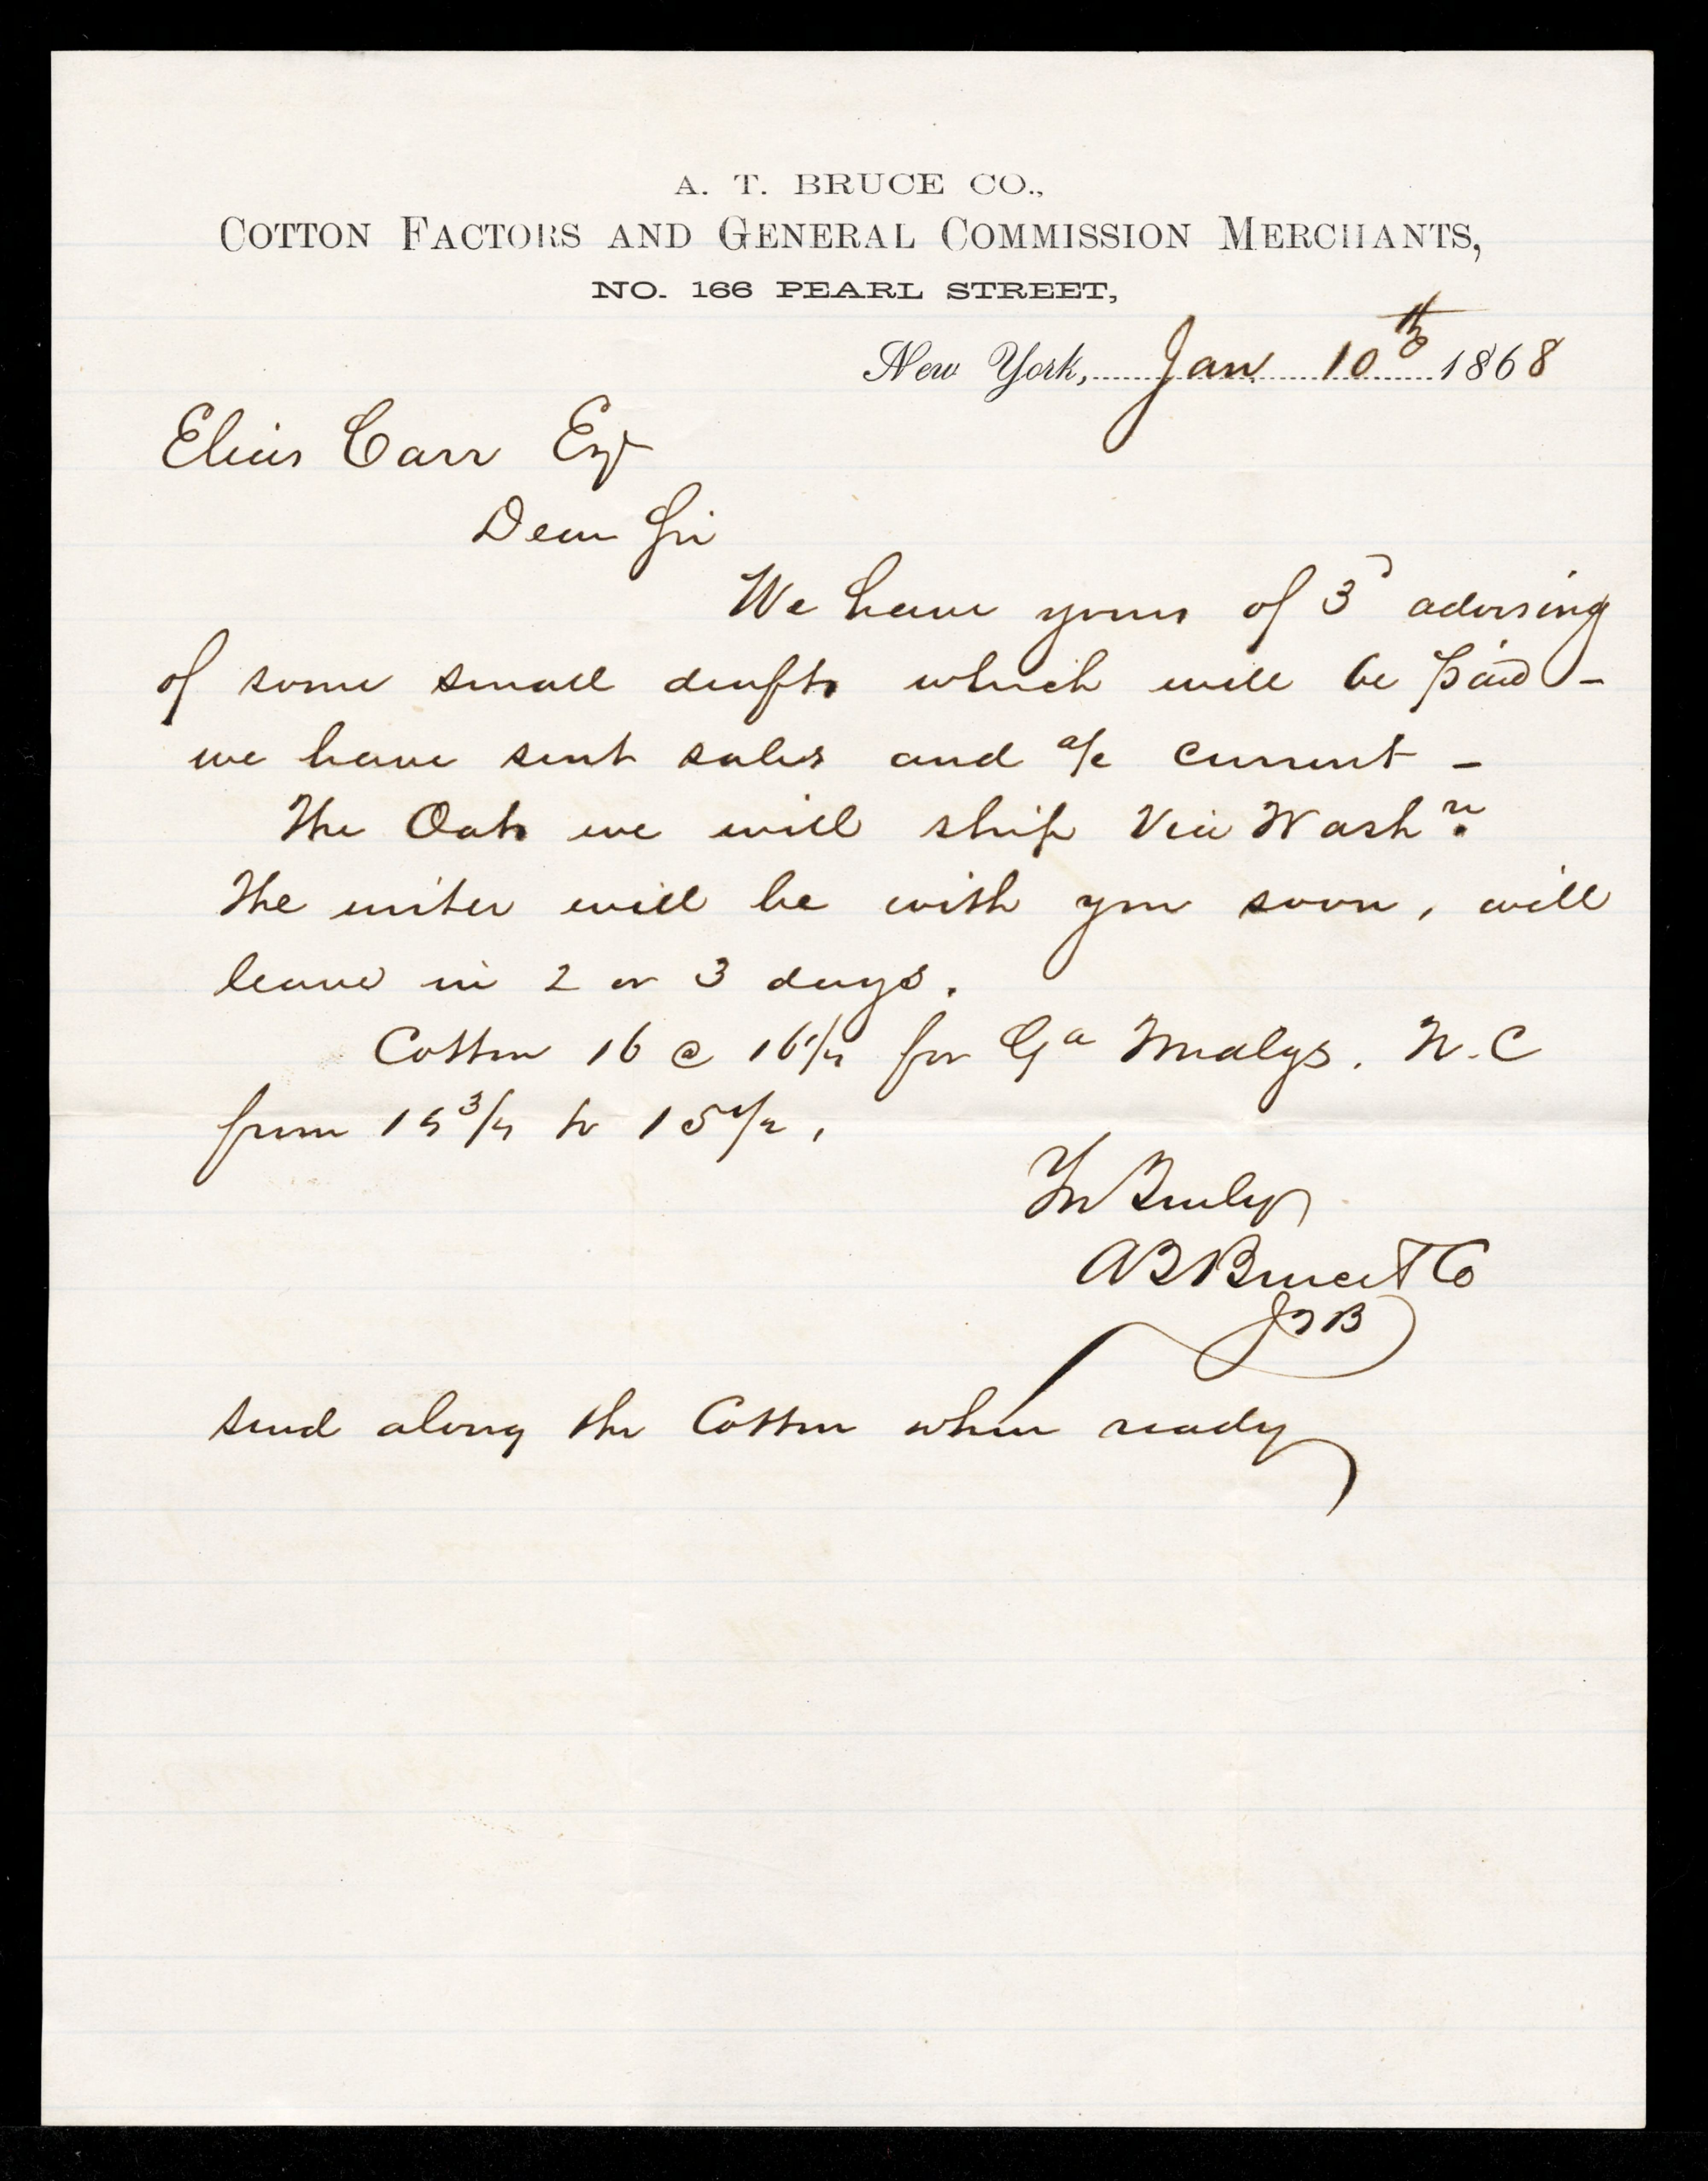 A. T. BRUCE CO.,
COTTON FACTORS AND GENERAL COMMISSION MERCHANTS,
NO. 166 PEARL STREET,
New York, Jan 10th 1868
Elias Carr Esq
Dear Sir
We have yours of 3d advising
of some small drafts which will be paid -
we have sent sales and a/c current -
The Oats we will ship Via Washn.
The writer will be with you soon, will
leave in 2 or 3 days.
Cotton 16 @ 16 1/4 for Ga . N.C
from 15 3/4 to 15 1/2.
Yrs Truly
A T Bruce & Co
J T B
send along the Cotton when ready